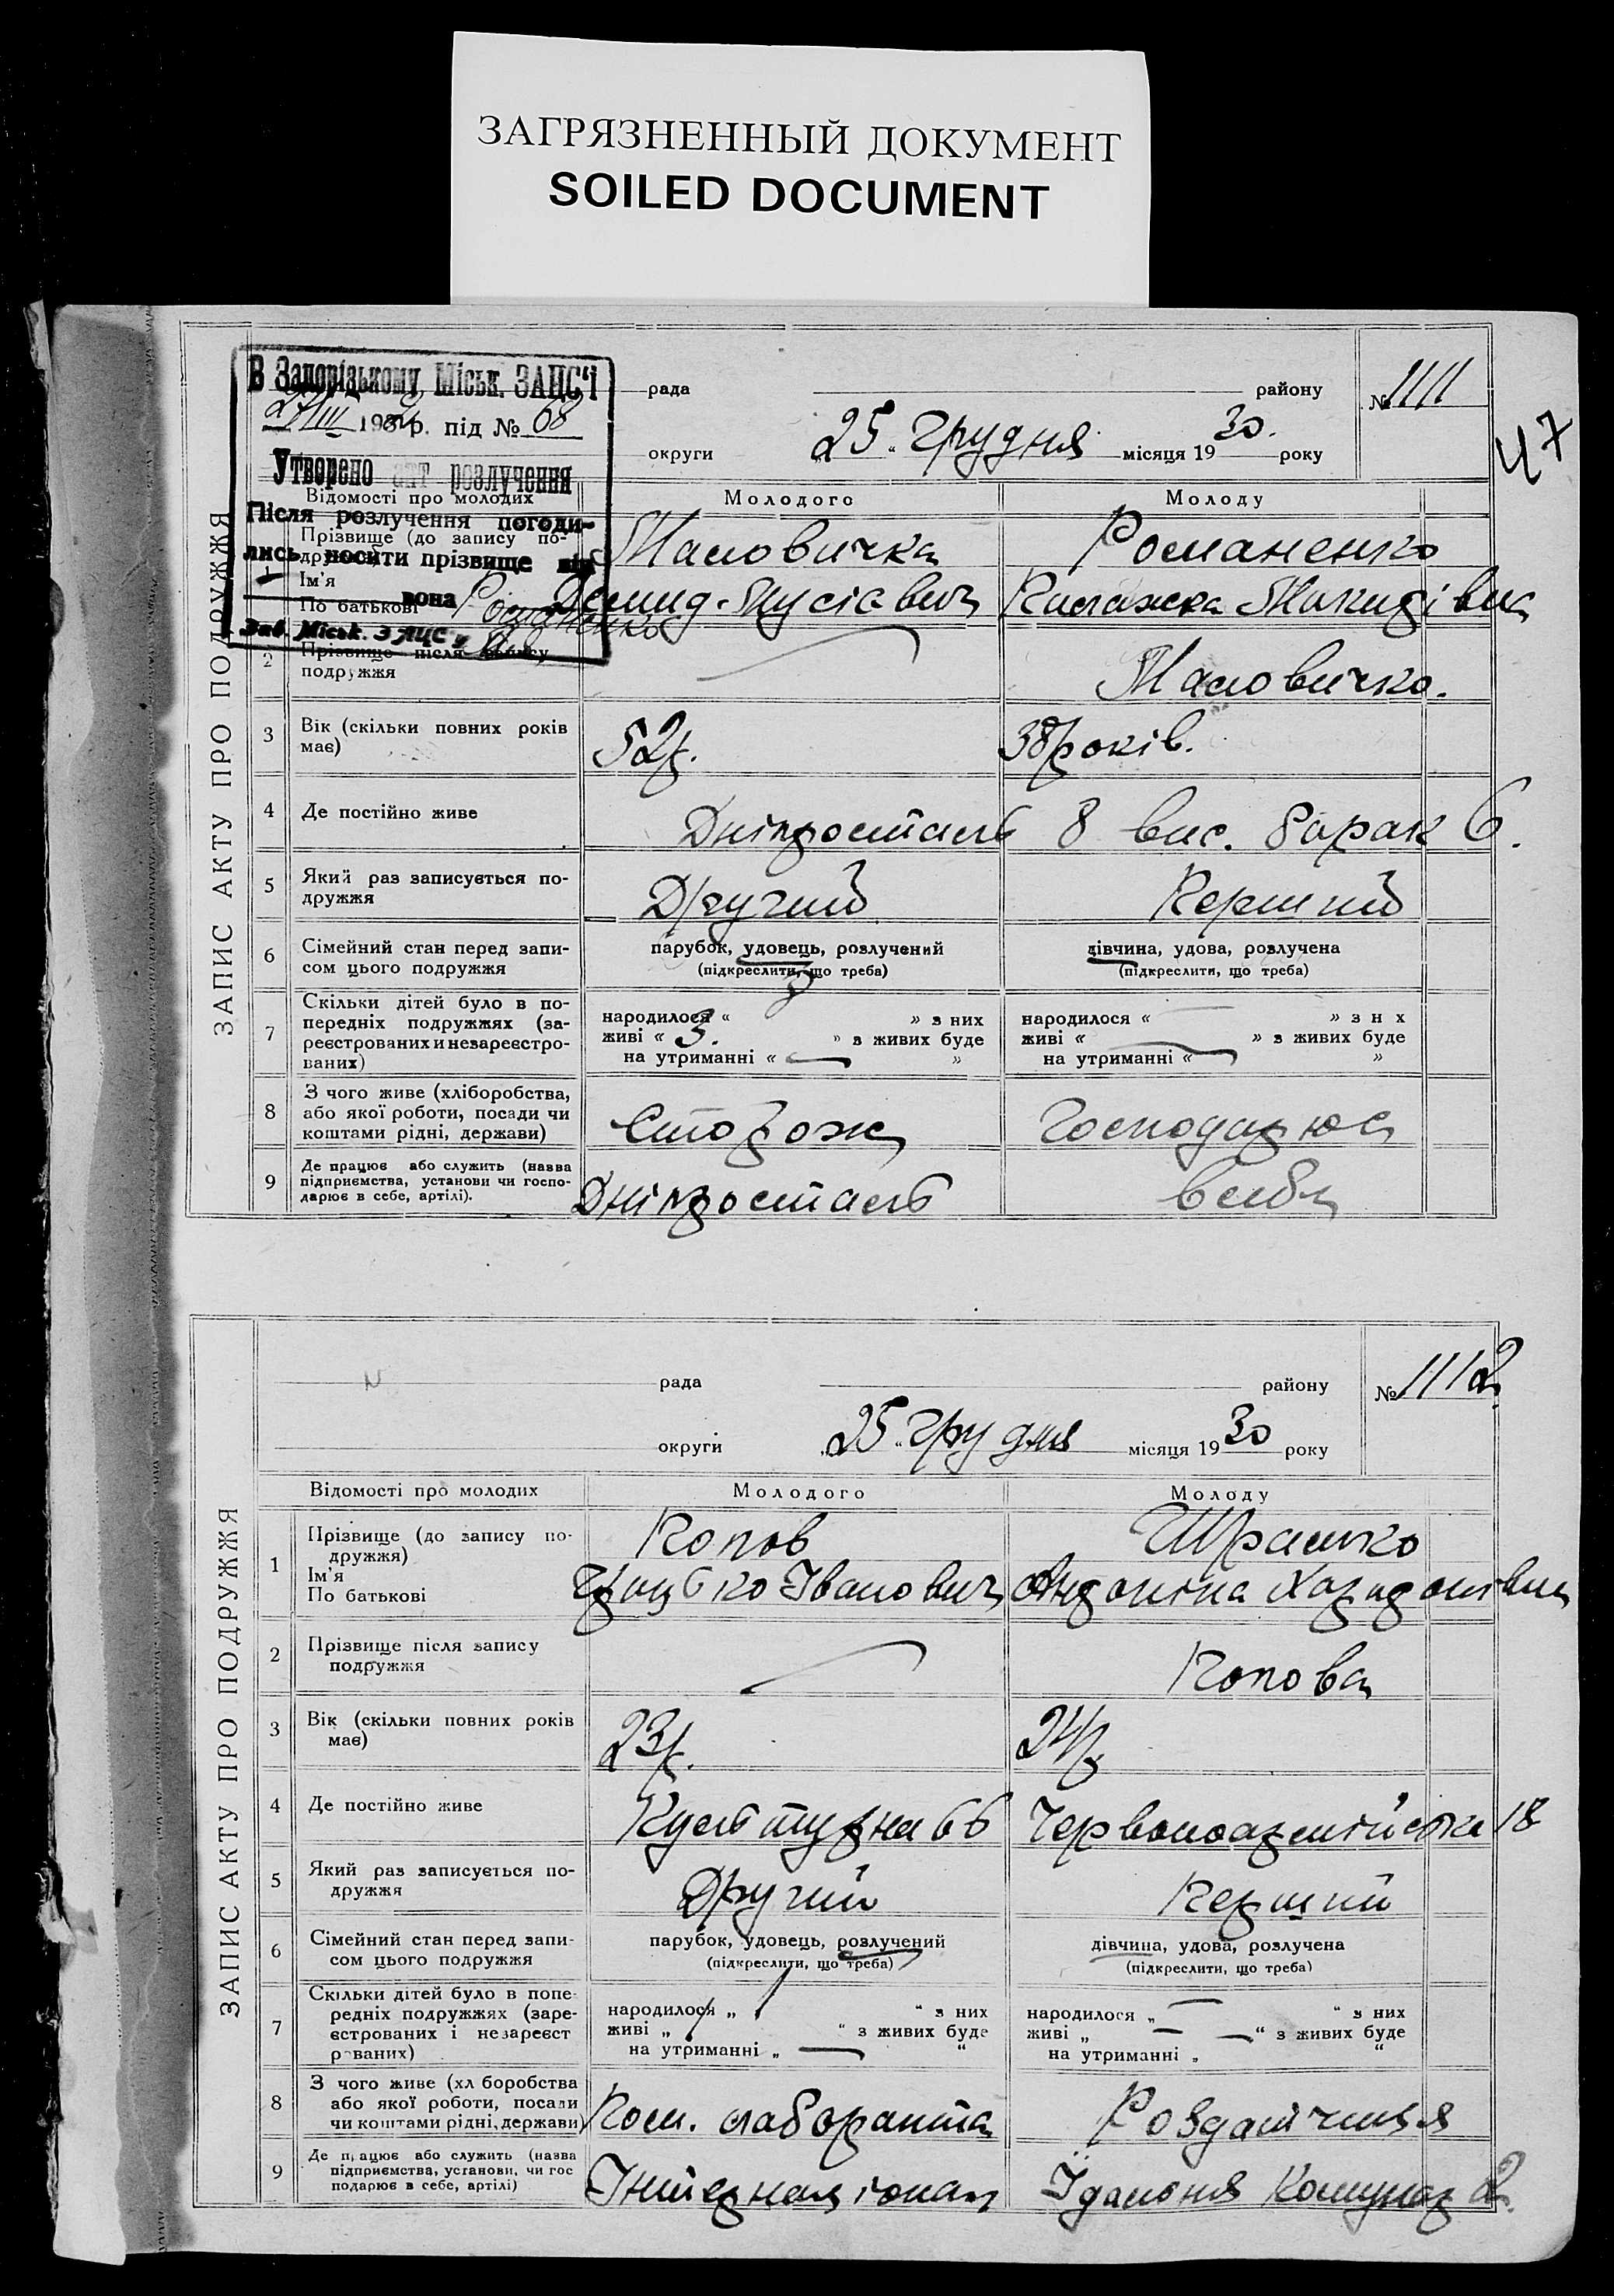 ЗАГРЯЗНЕННЫЙ ДОКУМЕНТ
SOILED DOCUMENT
47
ЗАПИС АКТУ ПРО ПОДРУЖЖЯ
В Запорізькому Міськ. ЗАЦС'і
27/III 1932р. під № 68
Утворено акт розлучення
Після розлучення погоди-
лись носити прізвище він
вона Романенко
Зав. Міськ. ЗАЦС'у
рада району № 1111
округи „25“ Грудня місяця 1930. року
Відомості про молодих Молодого Молоду
1 Прізвище (до запису по-
дружжя) Маловичка Романенко
Ім'я
По батькові Демид Мусієвич Килажка Микитівна
2 Прізвище після запису
подружжя Маловичко.
3 Вік (скільки повних років
має) 52р. 38років.
4 Де постійно живе Дніпросталь 8 вис. барак 6.
5 Який раз записується по-
дружжя Другий Перший
6 Сімейний стан перед запи-
сом цього подружжя парубок, удовець, розлучений дівчина, удова, розлучена
(підкреслити, що треба) (підкреслити, що треба)
7 Скільки дітей було в по-
передніх подружжях (за-
реєстрованих и незареєстро-
ваних)
народилося « 3 » з них народилося « » з н х
живі « 3. » з живих буде живі « » з живих буде
на утриманні « — » на утриманні « — »
8 З чого живе (хліборобства,
або якої роботи, посади чи
коштами рідні, держави) Сторож Господарює
9 Де працює або служить (назва
підприємства, установи чи госпо-
дарює в себе, артілі). Дніпросталь в себя
ЗАПИС АКТУ ПРО ПОДРУЖЖЯ
рада району № 1112
округи „25“ Грудня місяця 1930 року
Відомості про молодих Молодого Молоду
1 Прізвище (до запису по-
дружжя) Попов Шрамко
Ім'я
По батькові Грицько Іванович Андоніна Харидонівна
2 Прізвище після запису
подружжя Попова
3 Вік (скільки повних років
має) 23р. 24р
4 Де постійно живе Культурна 66 Червоноармійська 18
5 Який раз записується по-
дружжя Другий Перший
6 Сімейний стан перед запи-
сом цього подружжя парубок, удовець, розлучений дівчина, удова, розлучена
(підкреслити, що треба) (підкреслити, що треба)
7 Скільки дітей було в попе-
редніх подружжях (заре-
єстрованих і незареєст
рованих)
народилося „ 1 “ з них народилося „ — “ з них
живі „ 1 “ з живих буде живі „ — “ з живих буде
на утриманні „ — “ на утриманні „ — “
8 З чого живе (хл боробства
або якої роботи, посади
чи коштами рідні, держави) Пом. лаборанта Роздатчиця
9 Де працює або служить (назва
підприємства, установи, чи гос
подарює в себе, артілі) Інтернаціонал Їдальня Комунар 2.